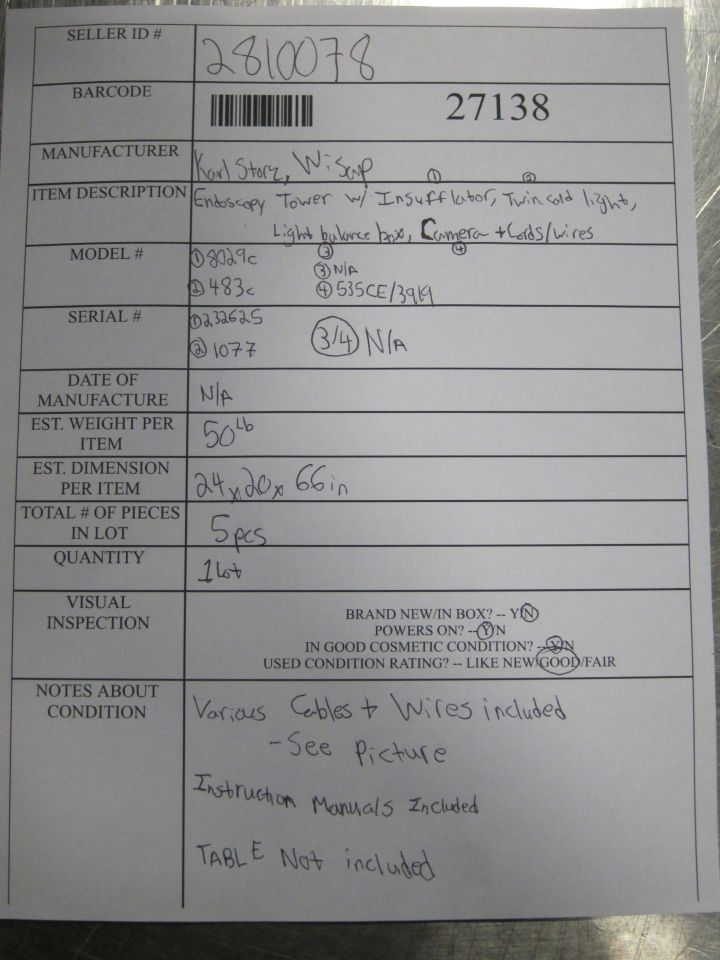 SELLER ID #
2810078
BARCODE
27138
MANUFACTURER
Karl Storz, Wisap
① ②
ITEM DESCRIPTION
Endoscopy Tower w/ Insufflator, Twin cold light,
Light balance box, Camera + Cords/wires
③ ④
MODEL #
① 8029c
② 483c
③ N/A
④ 535CE/39k9
SERIAL #
① 232625
② 1077
3/4 N/A
DATE OF
MANUFACTURE
N/A
EST. WEIGHT PER
ITEM
50 lb
EST. DIMENSION
PER ITEM
24 x 20 x 66 in
TOTAL # OF PIECES
IN LOT
5 pcs
QUANTITY
1 Lot
VISUAL
INSPECTION
BRAND NEW/IN BOX? -- Y/N
POWERS ON? --Y/N
IN GOOD COSMETIC CONDITION? --Y/N
USED CONDITION RATING? -- LIKE NEW/GOOD/FAIR
NOTES ABOUT
CONDITION
Various Cables + Wires included
- See Picture
Instruction Manuals Included
TABLE Not included